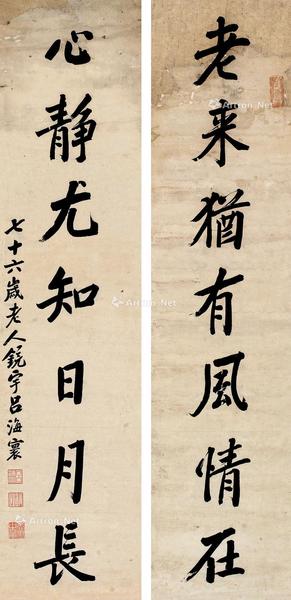 老来猶有風情在
心靜尤知日月長
七十六歲老人鏡宇呂海寰